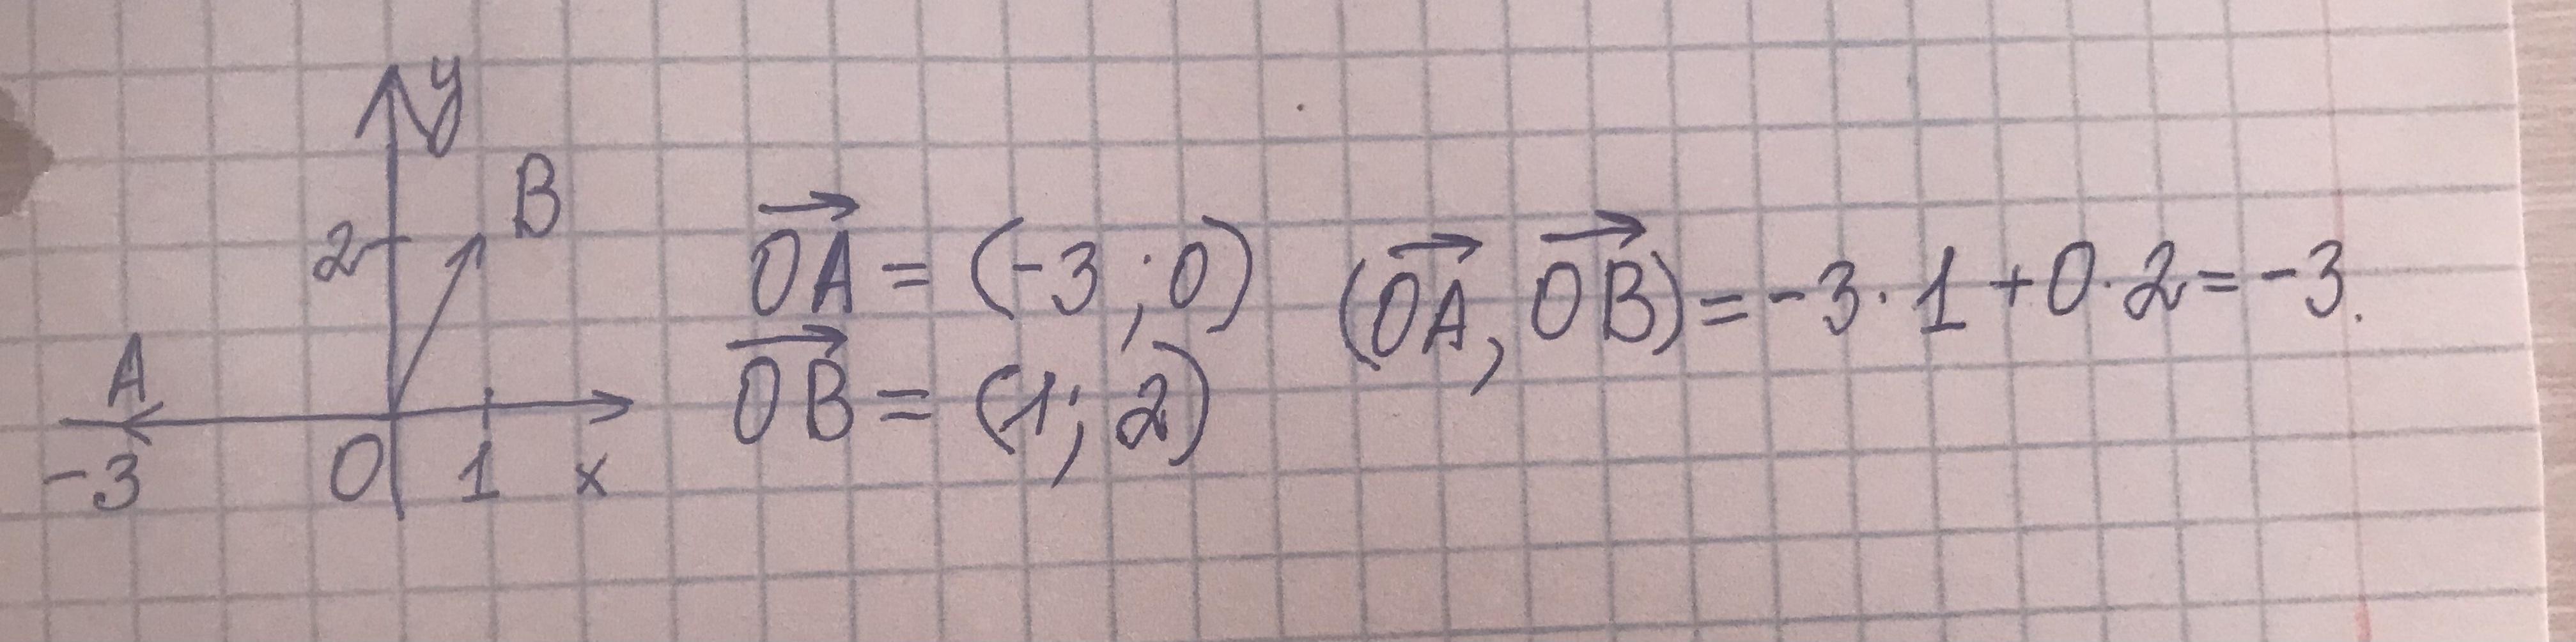 y
B
2
A
-3 0 1 x
OA = (-3 ; 0)
OB = (1; 2)
(OA, OB) = -3 · 1 + 0 · 2 = -3.